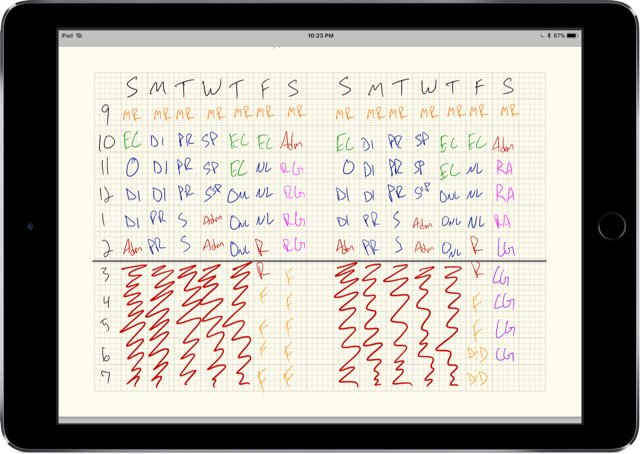 iPad 10:23 PM 87%
S M T W T F S S M T W T F S
9 MR MR MR MR MR MR MR MR MR MR MR MR MR MR
10 EC DI PR SP EC EC Adm EC DI PR SP EC EC Adm
11 O DI PR SP EC NL RG O DI PR SP EC NL RA
12 DI DI PR SSP ONL NL RG DI DI PR SSP ONL NL RA
1 DI PR S Adm ONL NL RG DI PR S Adm ONL NL RA
2 Adm PR S Adm ONL R RG Adm PR S Adm ONL R LG
3 R F R LG
4 F F F LG
5 F F F LG
6 F F D;D LG
7 F F D;D